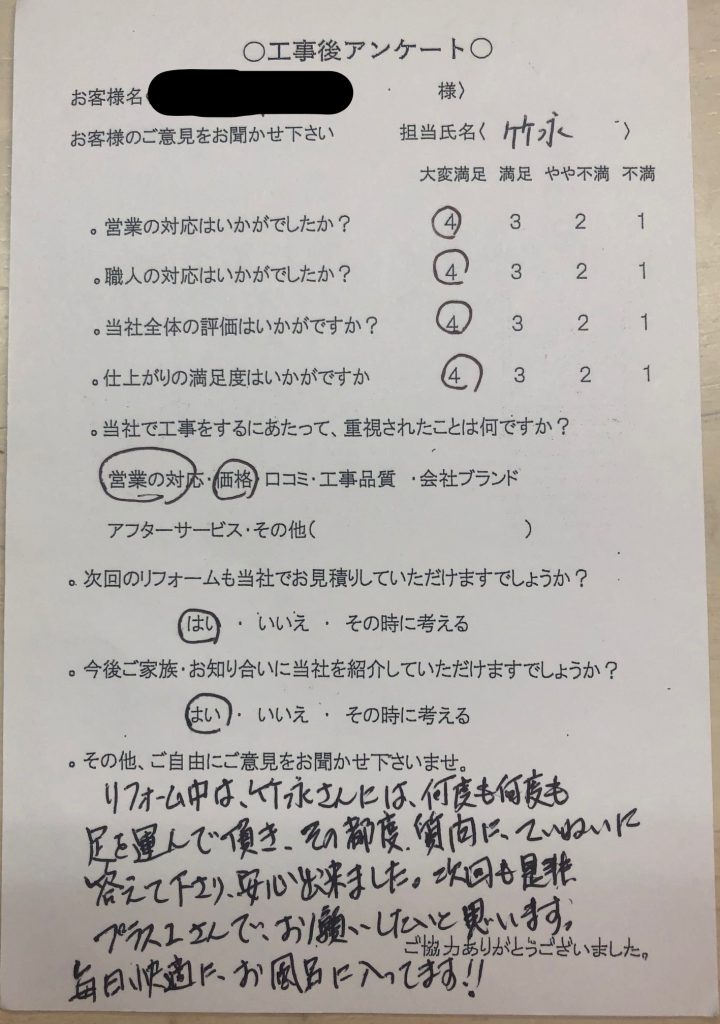 〇工事後アンケート〇
お客様名 様〉
お客様のご意見をお聞かせ下さい 担当氏名〈 竹永 〉
大変満足 満足 やや不満 不満
。営業の対応はいかがでしたか？ 4 3 2 1
。職人の対応はいかがでしたか？ 4 3 2 1
。当社全体の評価はいかがですか？ 4 3 2 1
。仕上がりの満足度はいかがですか 4 3 2 1
。当社で工事をするにあたって、重視されたことは何ですか？
営業の対応・価格・口コミ・工事品質 ・会社ブランド
アフターサービス・その他( )
。次回のリフォームも当社でお見積りしていただけますでしょうか？
はい ・ いいえ ・ その時に考える
。今後ご家族・お知り合いに当社を紹介していただけますでしょうか？
はい ・ いいえ ・ その時に考える
。その他、ご自由にご意見をお聞かせ下さいませ。
リフォーム中は、竹永さんには、何度も何度も
足を運んで頂き、その都度、質問に、ていねいに
答えて下さり、安心出来ました。次回も是非
プラスエさんで、お願いしたいと思います。
ご協力ありがとうございました。
毎日、快適に、お風呂に入ってます!!